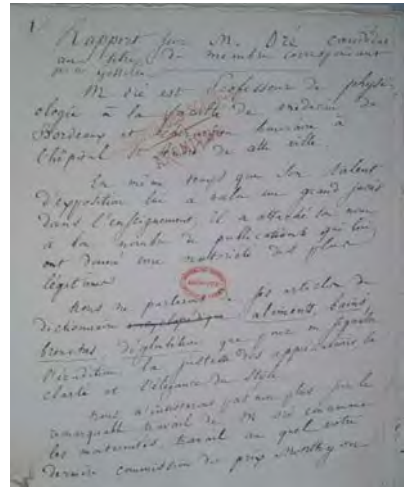 1
Rapport sur M. Oré candidat
au titre de membre correspondant
M Oré est Professeur de physi-
ologie à la faculté de médecine de
Bordeaux et chirurgien honoraire à
l'hôpital St de cette ville.
En même temps que son talent
d'exposition lui a valu un grand succès
dans l'enseignement, il a attaché son nom
à bon nombre de publications qui lui
ont donné une notoriété des plus
légitimes.
Nous ne parlerons ses articles de
dictionnaire encyclopédique aliments, bains,
bronches, déglutition que pour en signaler
l'érudition la justesse des appréciations la
clarté et l'élégance du style.
Nous n'insisterons pas non plus sur le
remarquable travail de M Oré concernant
les maternités, travail au quel votre
dernière commission du prix Monthyon